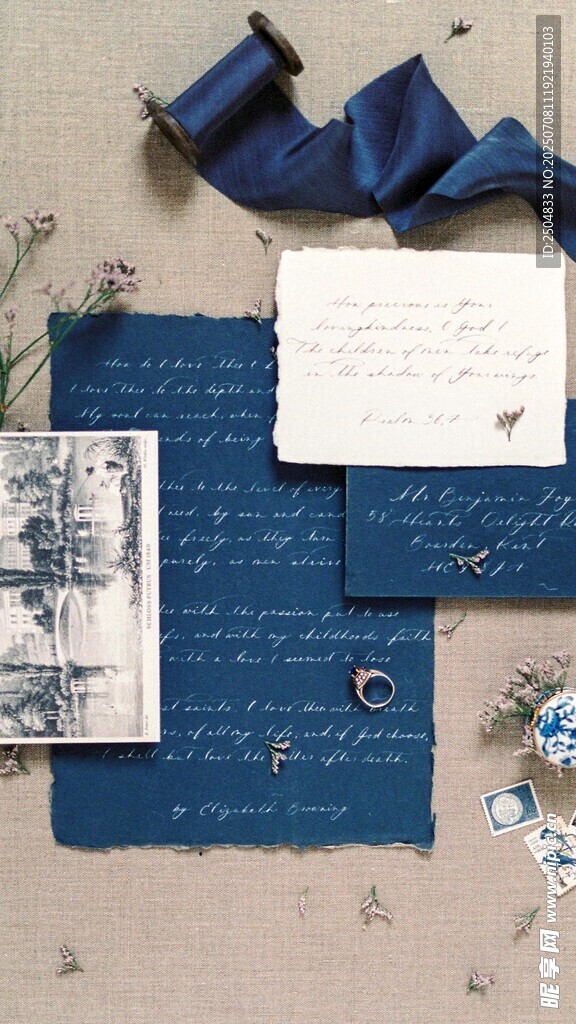 ID:2504833 NO:20250708111921940103
How precious is Your
lovingkindness, O God!
The children of men take refuge
in the shadow of Your wings
Psalm 36:7
How do I love thee?
I love thee to the depth and
My soul can reach, when
ends of being
thee to the level of every
need, by sun and cand
freely, as they turn
purely, as men
thee with the passion put to use
and with my childhoods faith
with a love I seemed to lose
saints. I love thee with breath
of all my life; and, if God choose,
I shall but love thee better after death.
by Elizabeth Browning
Mr Benjamin Foy
58 Hearts Delight R
Boarden, Kent
SCHLOSS PETRUS UM 1840
昵享网 www.nipic.cn